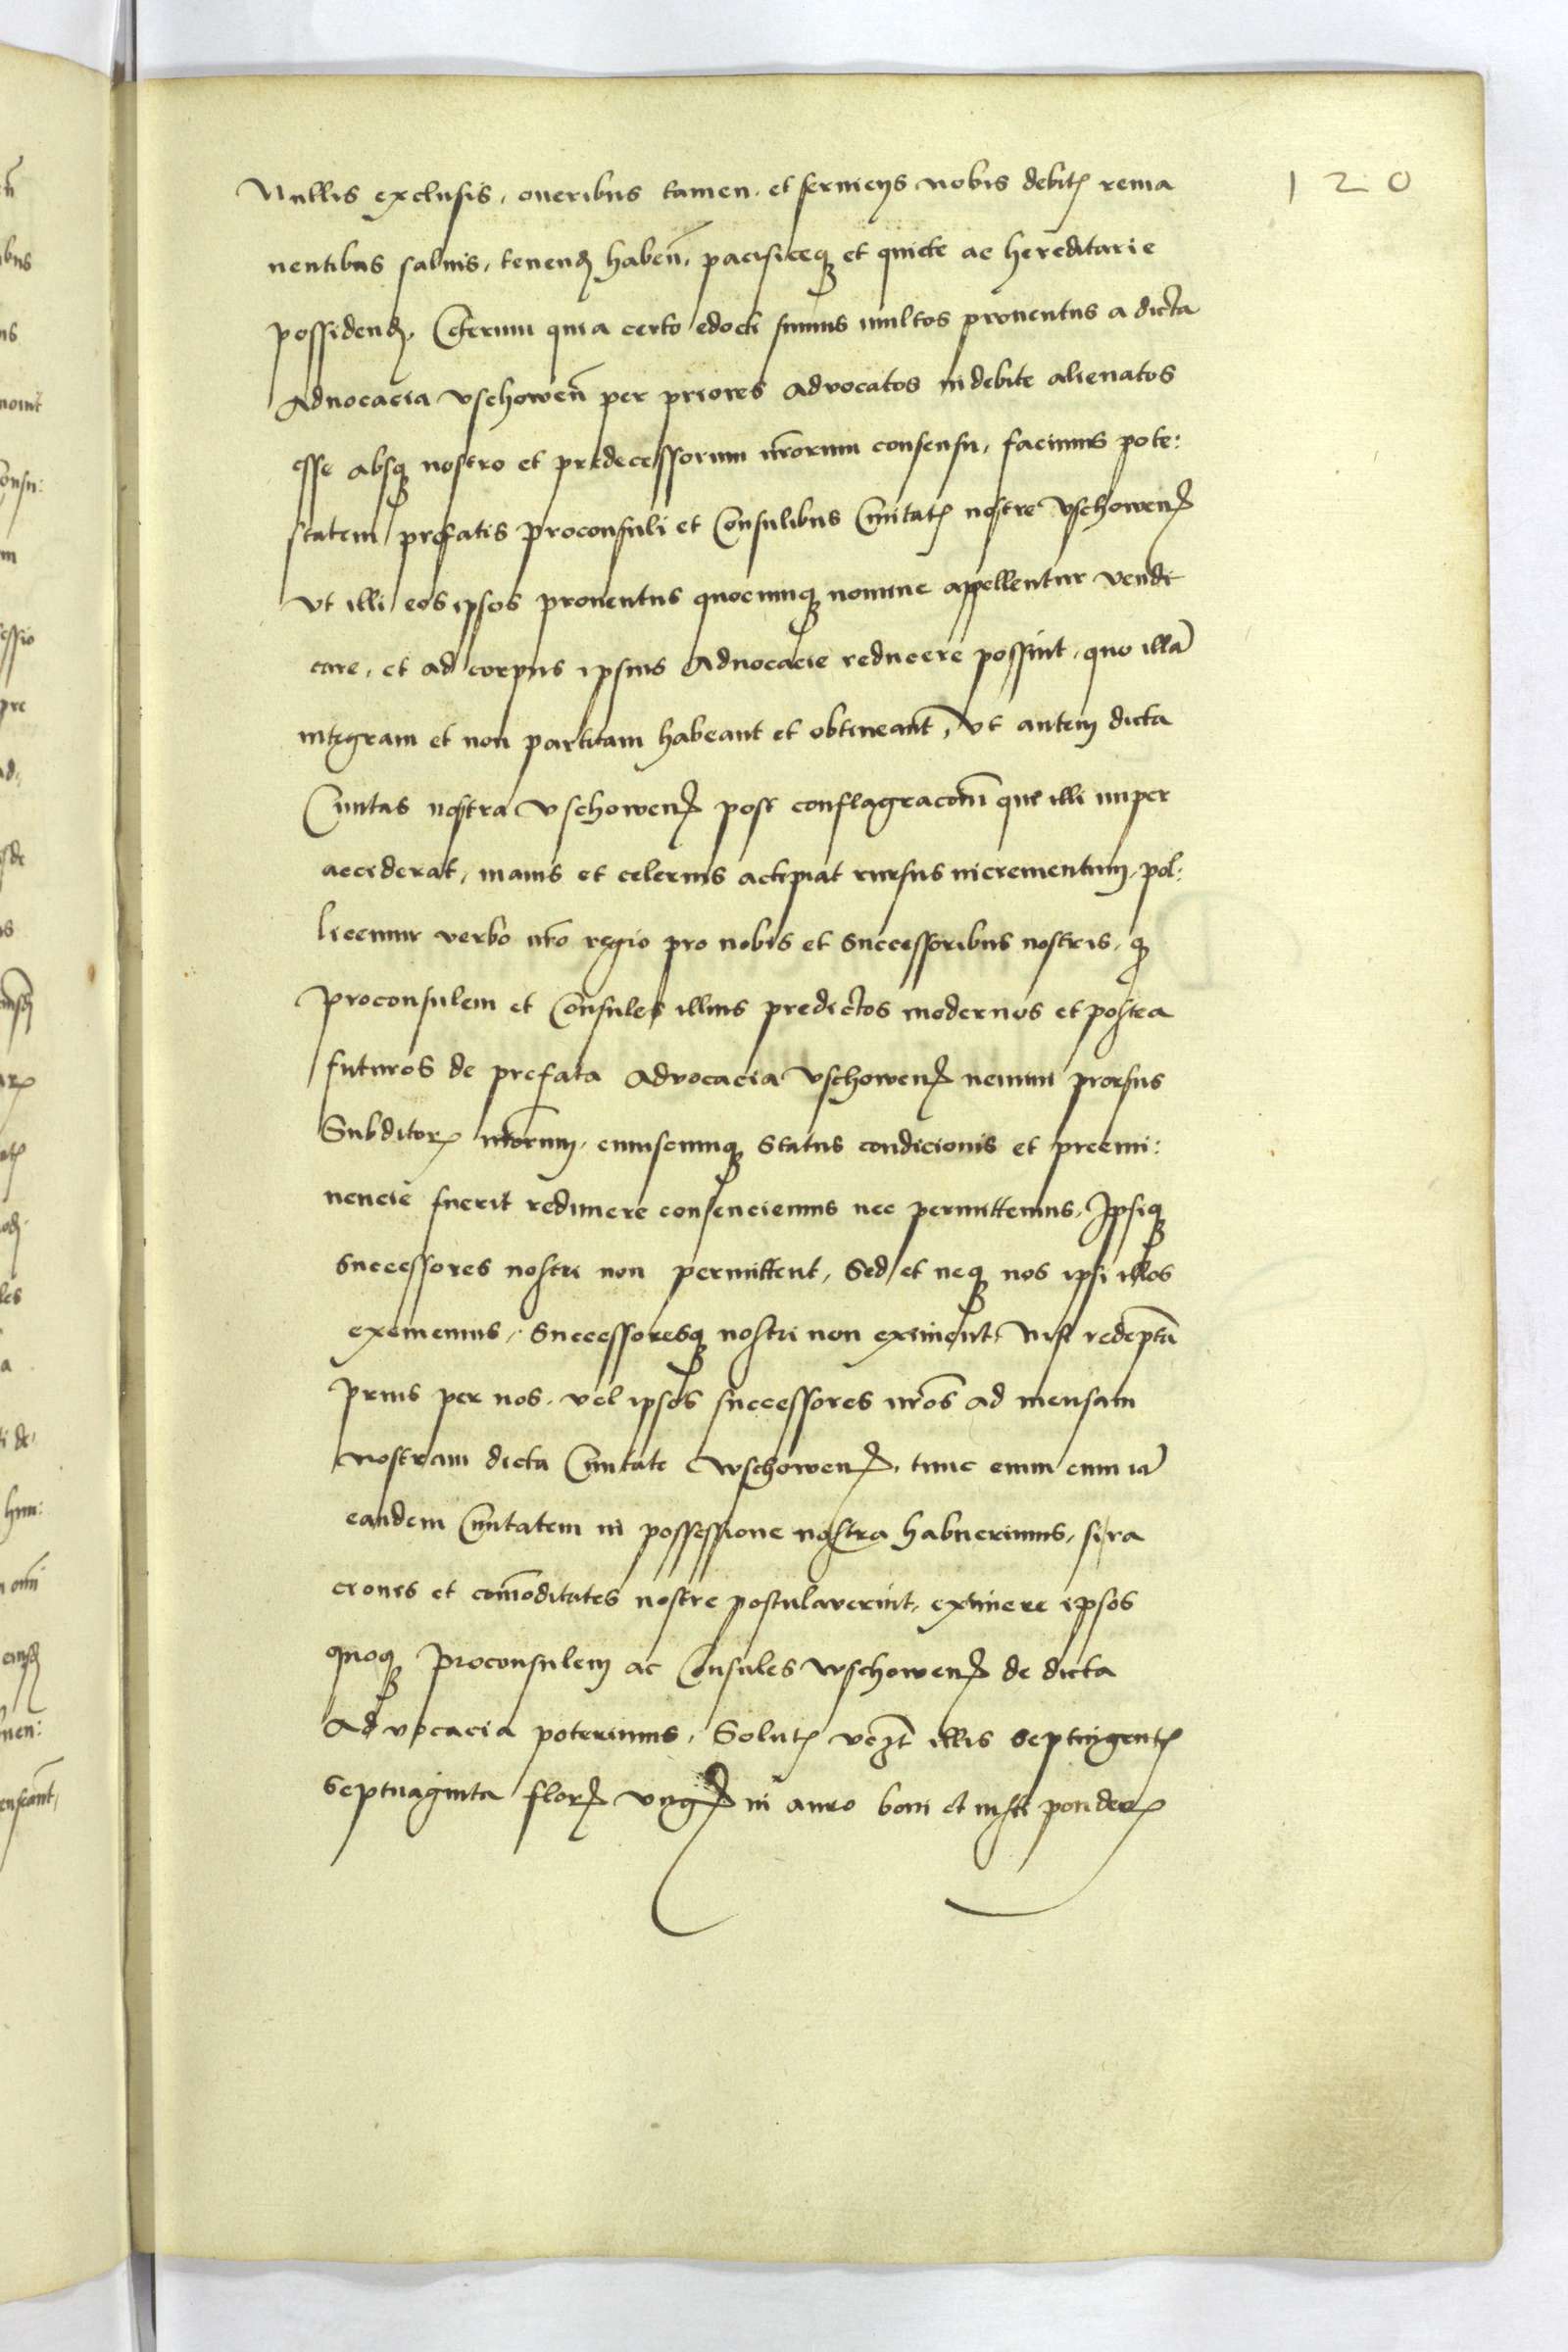 120
Nullis exclusis, oneribus tamen et serviciis nobis debitꝭ rema
nentibus salvis, tenendꝭ habeñ, pacificeqꝫ et quiete ac hereditarie
possidendꝭ. Ceterum quia certo edocti sumus multos proventus a dicta
Advocacia vschoweñ per priores Advocatos indebite alienatos
esse absqꝫ nostro et predecessorum nr̃orum consensu, facimus pote:
statem prefatis proconsuli et Consulibus Civitatꝭ nostre vschowenꝭ
vt illi eos ipsos proventus quocumqꝫ nomine appellentur vendi
care, et ad corpus ipsius Advocacie reducere possint, quo illã
integram et non partitam habeant et obtineant̃, vt autem dicta
Civitas nostra vschowenꝭ post conflagracõm̃ que illi nuper
acciderat, maius et celerius accipiat rursus incrementum, pol:
licemur verbo nr̃o regio pro nobis et successoribus nostris, qꝫ
proconsulem et Consules illius predictos modernos et postea
futuros de prefata Advocacia vschowenꝭ nemini prorsus
Subditorꝭ nr̃orum, cuiuscumqꝫ status condicionis et preemi:
nencie fuerit redimere consenciemus nec permittemus, Ipsiqꝫ
successores nostri non permittent, Sed et neqꝫ nos ipsi illos
eximemus, Successoresqꝫ nostri non eximent, nisi redemptã
prius per nos, vel ipsos successores nr̃os ad mensam
nostram dicta Civitate wschowenꝭ, tunc enim cum iã
eandem Civitatem in possessione nostra habuerimus, si ra
ciones et com̃oditates nostre postulaverint, eximere ipsos
quoqꝫ Proconsulem ac Consules wschowenꝭ de dicta
Advocacia poterimus, Solutꝭ illis septingentꝭ
septuaginta florꝭ vngꝭ in auro boni et iusti ponderꝭ